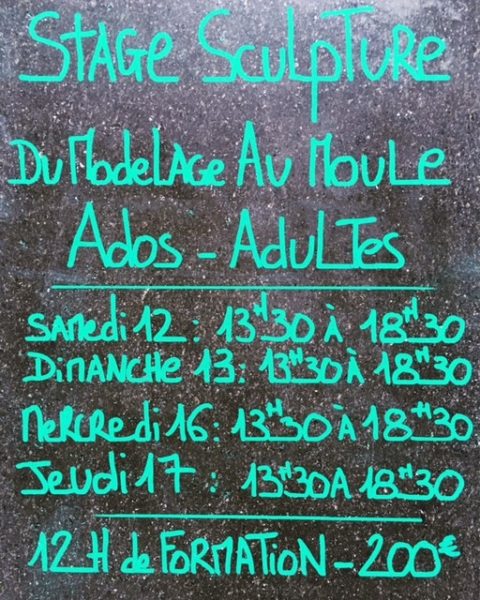 STAGE SCULPTURE
DU MODELAGE AU MOULE
ADOS - ADULTES
SAMEDI 12 : 13H30 À 18H30
DIMANCHE 13 : 13H30 À 18H30
MERCREDI 16 : 13H30 À 18H30
JEUDI 17 : 13H30 A 18H30
12 H de FORMATION - 200€